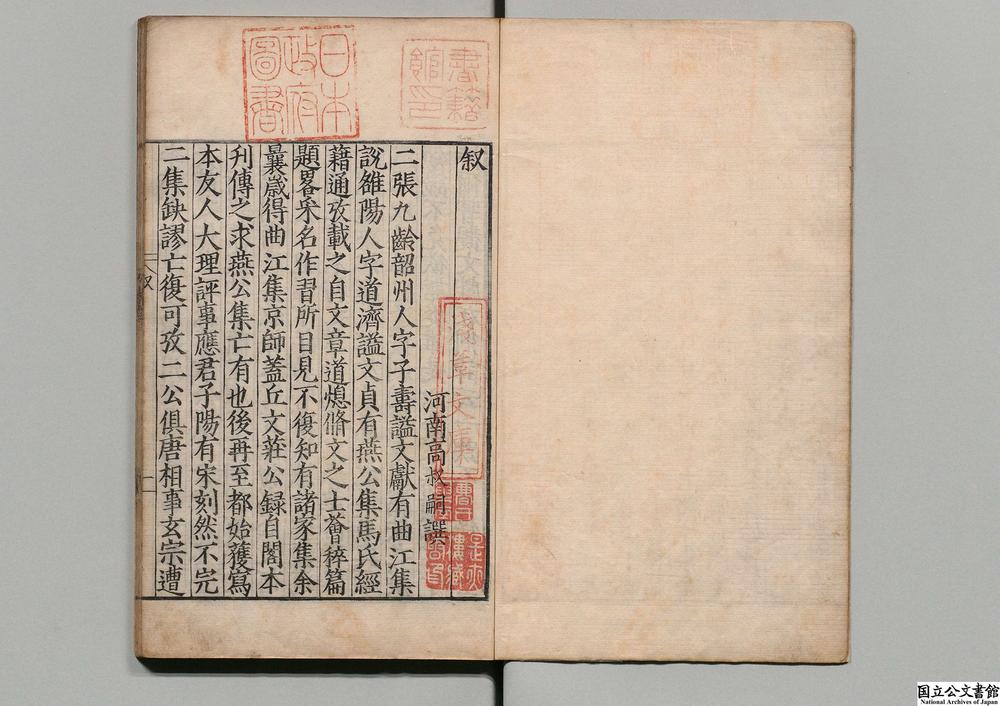 叙
河南高叔嗣譔
二張九齡韶州人字子壽謚文獻有曲江集
說雒陽人字道濟謚文貞有燕公集馬氏經
籍通攷載之自文章道熄脩文之士薈稡篇
題畧采名作習所目見不復知有諸家集余
曩歲得曲江集京師蓋丘文莊公録自閣本
刋傳之求燕公集亡有也後再至都始獲寫
本友人大理評事應君子陽有宋刻然不完
二集缺謬亡復可攷二公俱唐相事玄宗遭
叙
一
日本
政府
圖書
書籍
館印
文庫
国立公文書館
National Archives of Japan